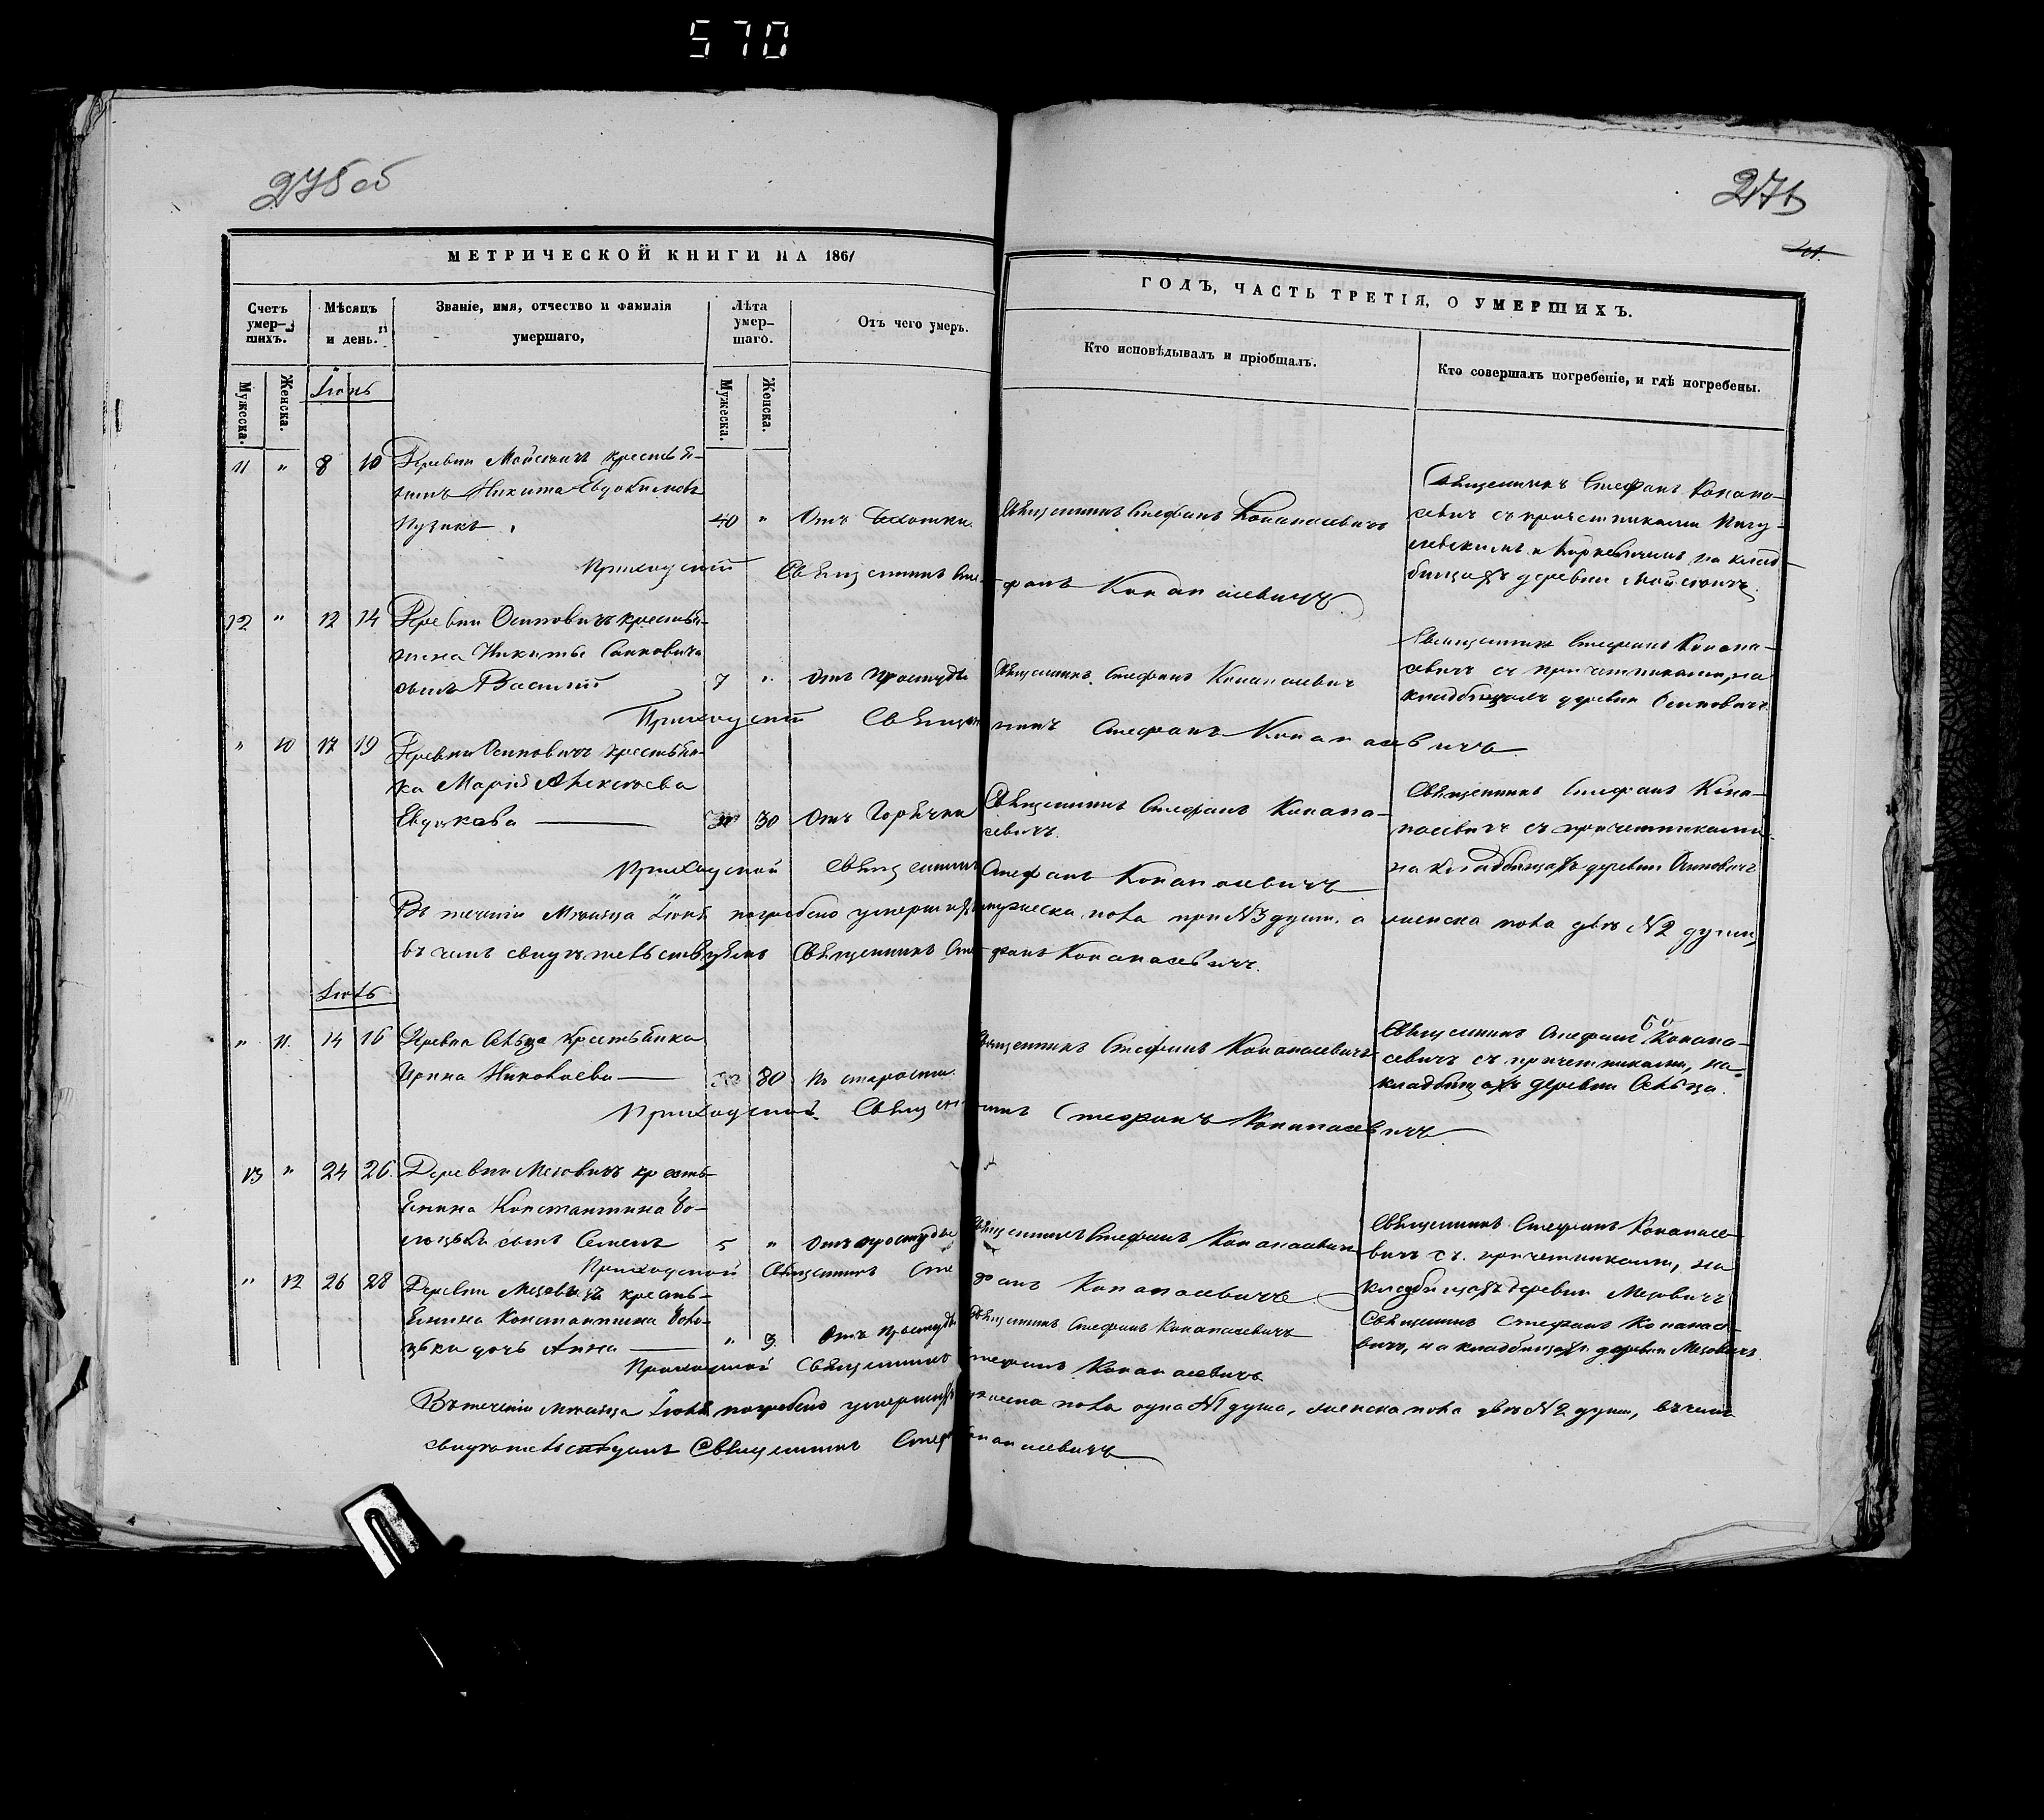 570
275 об
271
МЕТРИЧЕСКОЙ КНИГИ НА 1861
ГОДЪ, ЧАСТЬ ТРЕТІЯ, О УМЕРШИХЪ.
Счетъ умер-шихъ.
Мѣсяцъ и день.
Званіе, имя, отчество и фамилія умершаго,
Лѣта умер-шаго.
Отъ чего умеръ.
Кто исповѣдывалъ и пріобщалъ.
Кто совершалъ погребеніе, и гдѣ погребены.
Мужеска.
Женска.
Мужеска.
Женска.
Іюнь
11 " 8 10 Деревни крестья-
нинъ Никита Евдокимовъ
Пузикъ. 40 " Отъ Чахотки. Священникъ Стефанъ Конапасевичъ
Священникъ Стефанъ Конапа-
севичъ съ причетниками
на клад-
бищахъ деревни
Приходскій Священникъ Сте- фанъ Конапасевичъ
12 " 12 14 Деревни Осиповичъ крестья-
нина Никиты
сынъ Василій 7 " Отъ Простуды Священникъ Стефанъ Конапасевичъ
Священникъ Стефанъ Конапа-
севичъ съ причетниками, на
кладбищахъ деревни Осиповичъ
Приходскій Священ никъ Стефанъ Конапасевичъ
" 10 17 19 Деревни Осиповичъ крестьян-
ка Марія Алексѣева
30 Отъ Горячки Священникъ Стефанъ Конапа-
севичъ.
Священникъ Стефанъ Кона-
пасевичъ съ причетниками
на кладбищахъ деревни Осиповичъ
Приходской Священникъ Стефанъ Конапасевичъ
Въ теченіи Мѣсяца Іюня погребено умершихъ мужеска пола три №3 душ. а женска пола двѣ №2 души,
въ чемъ свидѣтельствуемъ Священникъ Сте- фанъ Конапасевичъ.
Іюль
" 11 14 16 Деревни крестьянка
Ирина Николаева 80 Къ старости. Священникъ Стефанъ Конапасевичъ
Священникъ Стефанъ Конапа-
севичъ съ причетниками, на
кладбищахъ деревни
Приходской Священ никъ Стефанъ Конапасевичъ
13 " 24 26 Деревни Мезовичъ кресть-
янина Константина
сынъ Семенъ 5 " Отъ простуды Священникъ Стефанъ Конапасевичъ
Священникъ Стефанъ Конапасе-
вичъ съ причетниками, на
кладбищахъ деревни Мезовичъ
Приходской Священникъ Сте фанъ Конапасевичъ
" 12 26 28 Деревни Мезовичъ кресть-
янина Константина
дочь Анна " 3 Отъ Простуды Священникъ Стефанъ Конапасевичъ
Священникъ Стефанъ Конапасе-
вичъ, на кладбищахъ деревни Мезовичъ
Приходской Священникъ Стефанъ Конапасевичъ
Въ теченіи мѣсяца Іюля погребено умершихъ мужеска пола одна №1 душа, женска пола двѣ №2 души, въ чемъ
свидѣтельствуемъ Священникъ Стефанъ Конапасевичъ